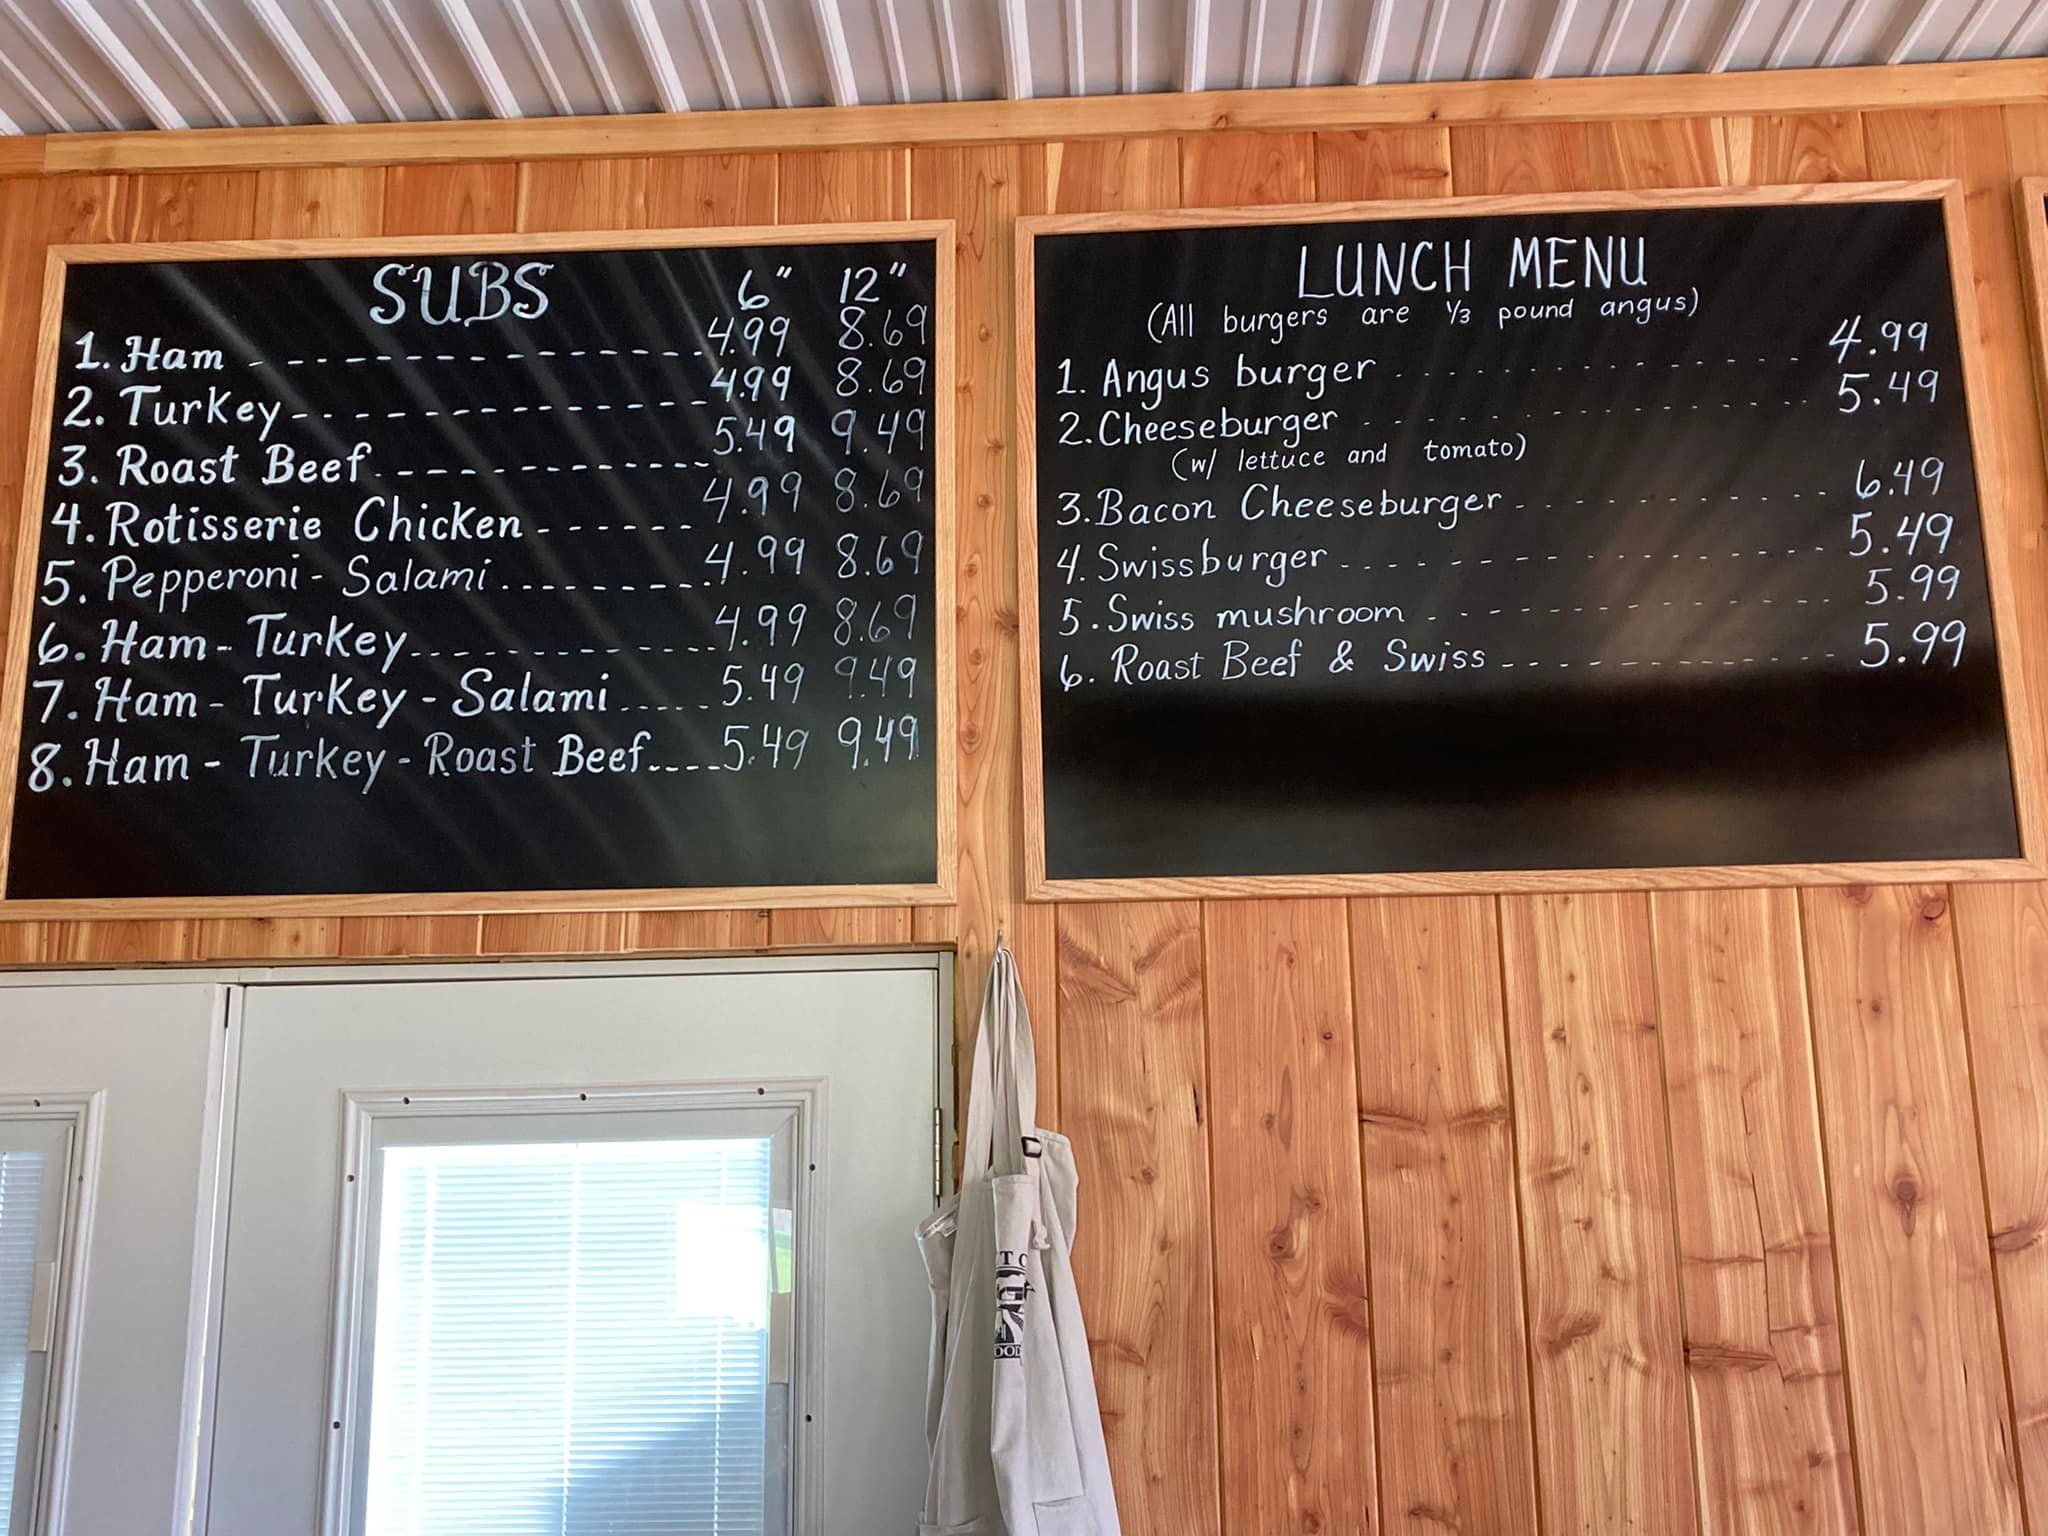 SUBS 6" 12"
1. Ham 4.99 8.69
2. Turkey 4.99 8.69
3. Roast Beef 5.49 9.49
4. Rotisserie Chicken 4.99 8.69
5. Pepperoni - Salami 4.99 8.69
6. Ham - Turkey 4.99 8.69
7. Ham - Turkey - Salami 5.49 9.49
8. Ham - Turkey - Roast Beef 5.49 9.49
LUNCH MENU
(All burgers are 1/3 pound angus)
1. Angus burger 4.99
2. Cheeseburger 5.49
(w/ lettuce and tomato)
3. Bacon Cheeseburger 6.49
4. Swissburger 5.49
5. Swiss mushroom 5.99
6. Roast Beef & Swiss 5.99